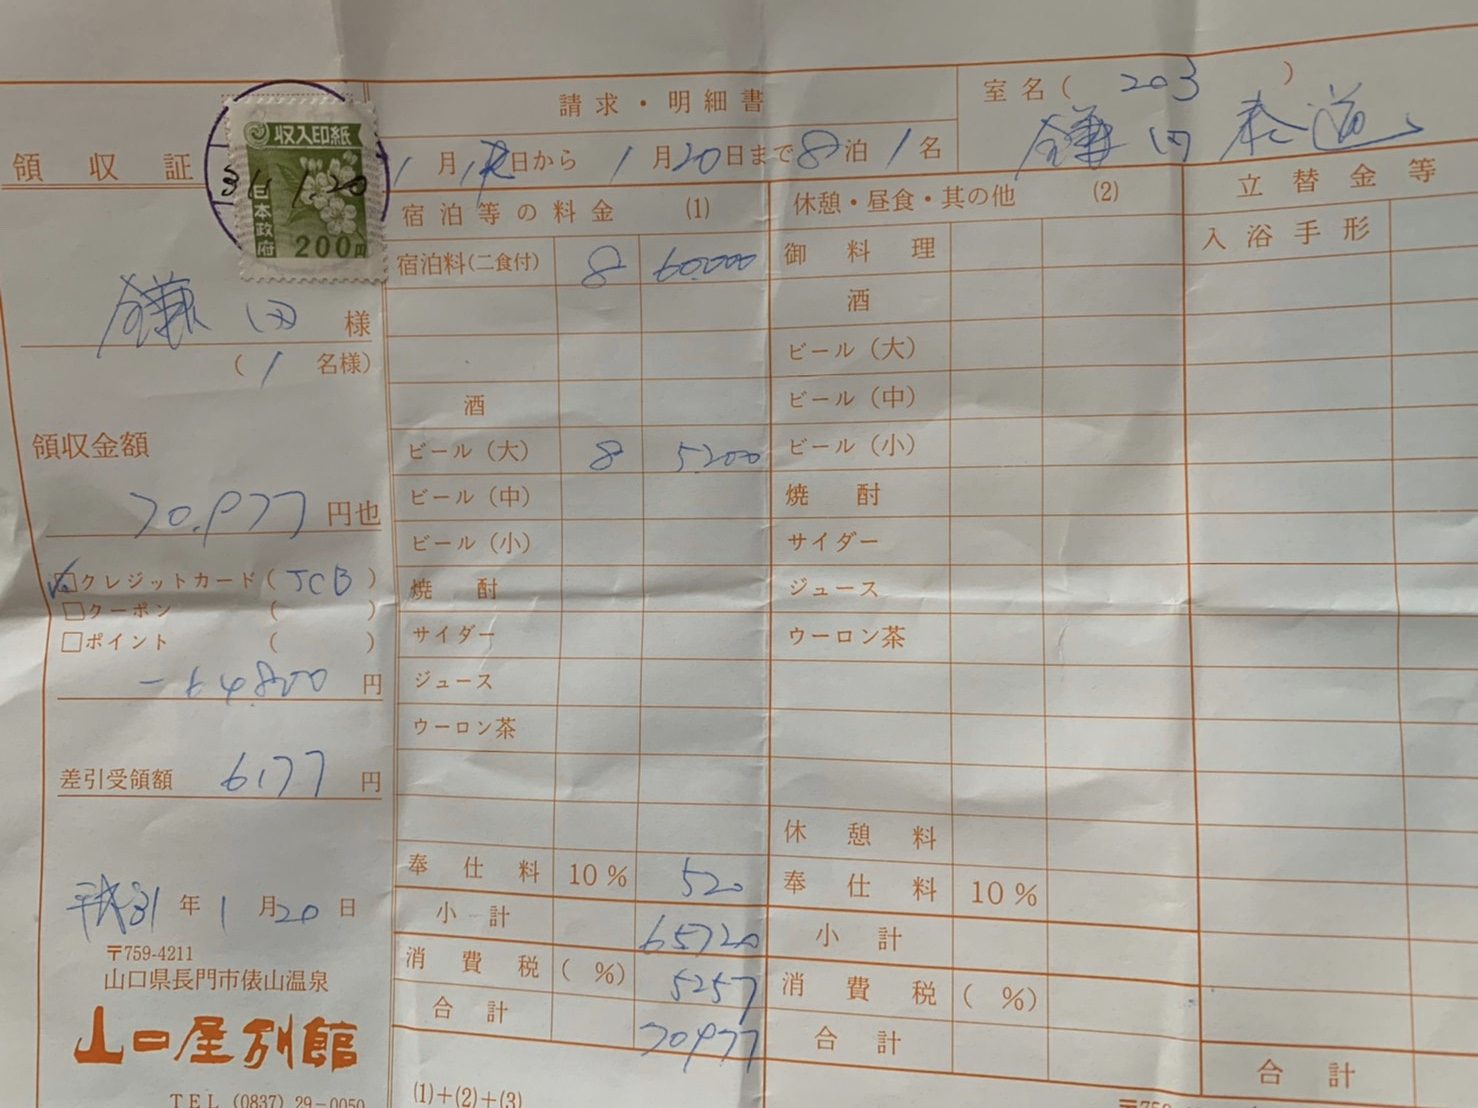 請求・明細書
室名( 203 )
鎌田 泰道
領収証
収入印紙
31. 1. 20
日本政府
200円
1月12日から 1月20日まで 8泊 1名
宿泊等の料金 (1)
休憩・昼食・其の他 (2)
立替金等
宿泊料(二食付) 8 60,000
御料理
入浴手形
酒
鎌田 様
( 1 名様)
ビール(大)
酒
ビール(中)
領収金額
ビール(大) 8 5200
ビール(小)
70,977 円也
ビール(中)
焼酎
ビール(小)
サイダー
クレジットカード( JCB )
焼酎
ジュース
□クーポン ( )
□ポイント ( )
サイダー
ウーロン茶
－64,800 円
ジュース
ウーロン茶
差引受領額 6177 円
休憩料
奉仕料 10% 520
奉仕料 10%
平成31年1月20日
小計 65720
小計
〒759-4211
山口県長門市俵山温泉
消費税 ( %) 5257
消費税 ( %)
山口屋別館
合計 70977
合計
合計
TEL (0837) 29-0050
(1)+(2)+(3)